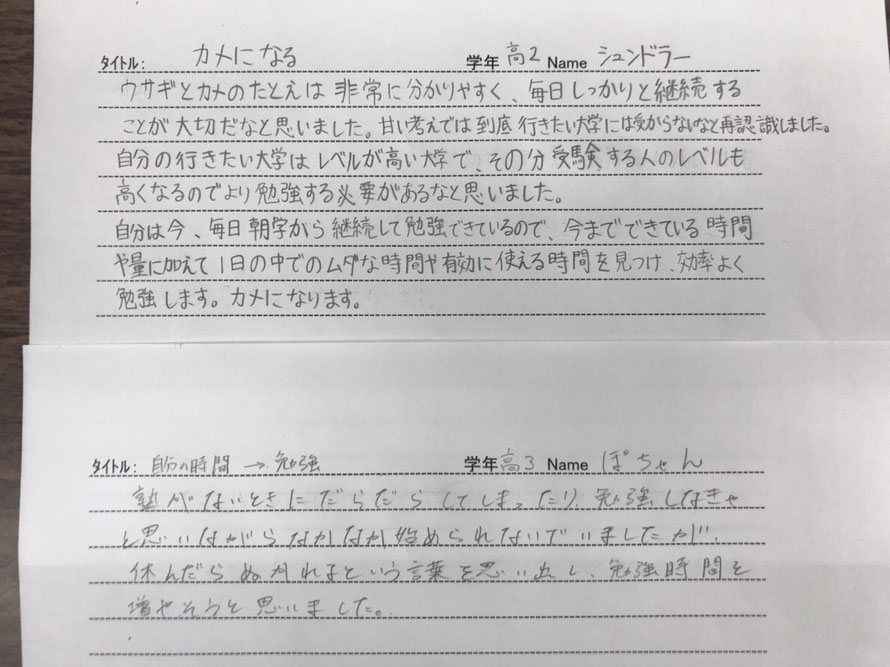 タイトル: カメになる 学年 高2 Name シュンドラー
ウサギとカメのたとえは非常に分かりやすく、毎日しっかりと継続する
ことが大切だなと思いました。甘い考えでは到底行きたい大学には受からないなと再認識しました。
自分の行きたい大学はレベルが高い大学で、その分受験する人のレベルも
高くなるのでより勉強する必要があるなと思いました。
自分は今、毎日朝学から継続して勉強できているので、今までできている時間
や量に加えて1日の中でのムダな時間や有効に使える時間を見つけ、効率よく
勉強します。カメになります。
タイトル: 自分の時間→勉強 学年 高3 Name ぽちゃん
塾がないときにだらだらしてしまったり、勉強しなきゃ
と思いながらなかなか始められないでいましたが、
休んだらぬかれるよという言葉を思い出し、勉強時間を
増やそうと思いました。